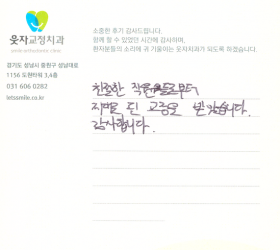 웃자교정치과
smile orthodontic clinic
경기도 성남시 중원구 성남대로
1156 도현타워 3,4층
031 606 0282
letssmile.co.kr
소중한 후기 감사드립니다.
함께 할 수 있었던 시간에 감사하며,
환자분들의 소리에 귀 기울이는 웃자치과가 되도록 하겠습니다.
친절한 직원들로부터
치료 된 교정을 받았습니다.
감사합니다.